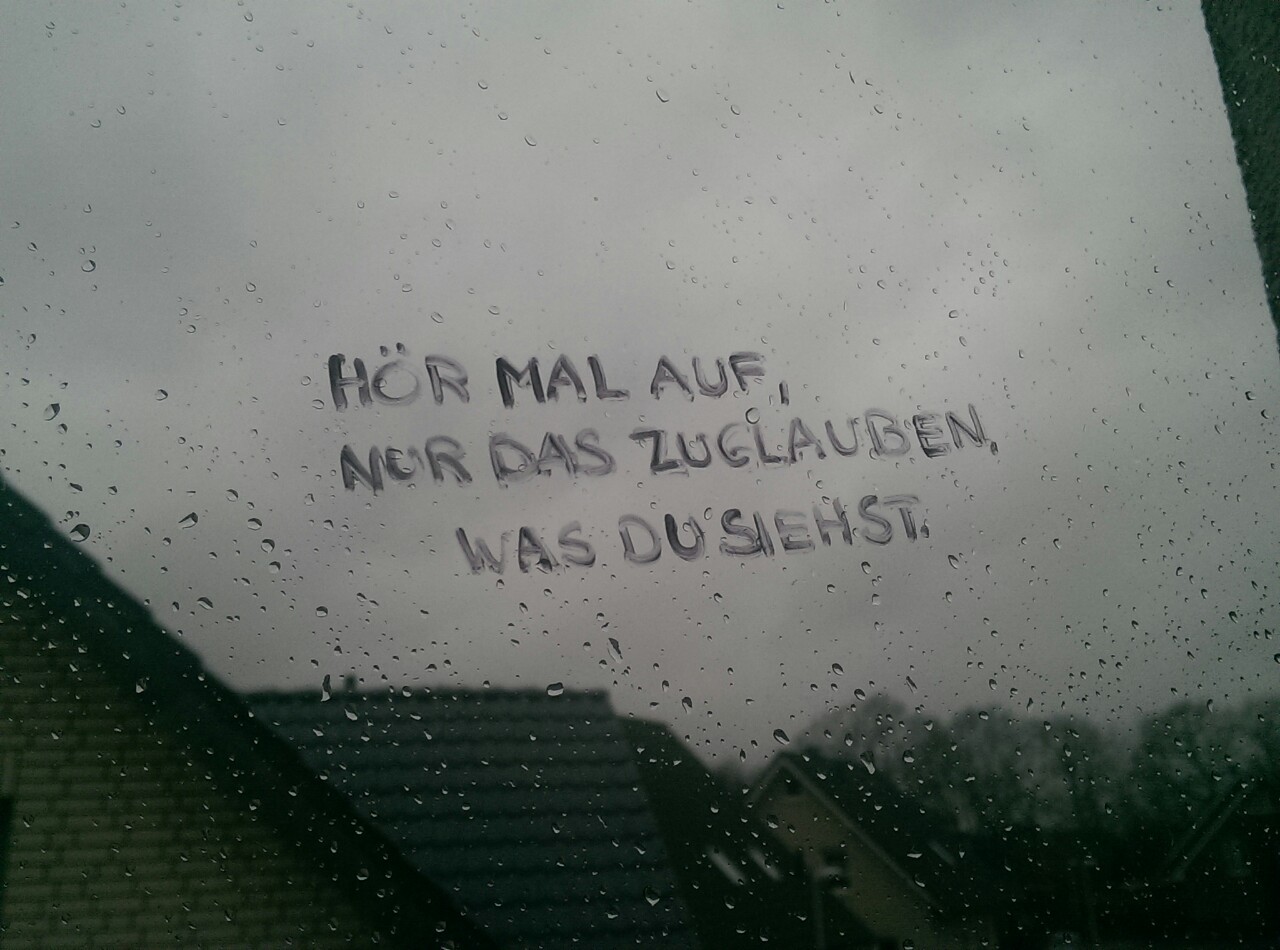 HÖR MAL AUF,
NUR DAS ZUGLAUBEN,
WAS DU SIEHST.